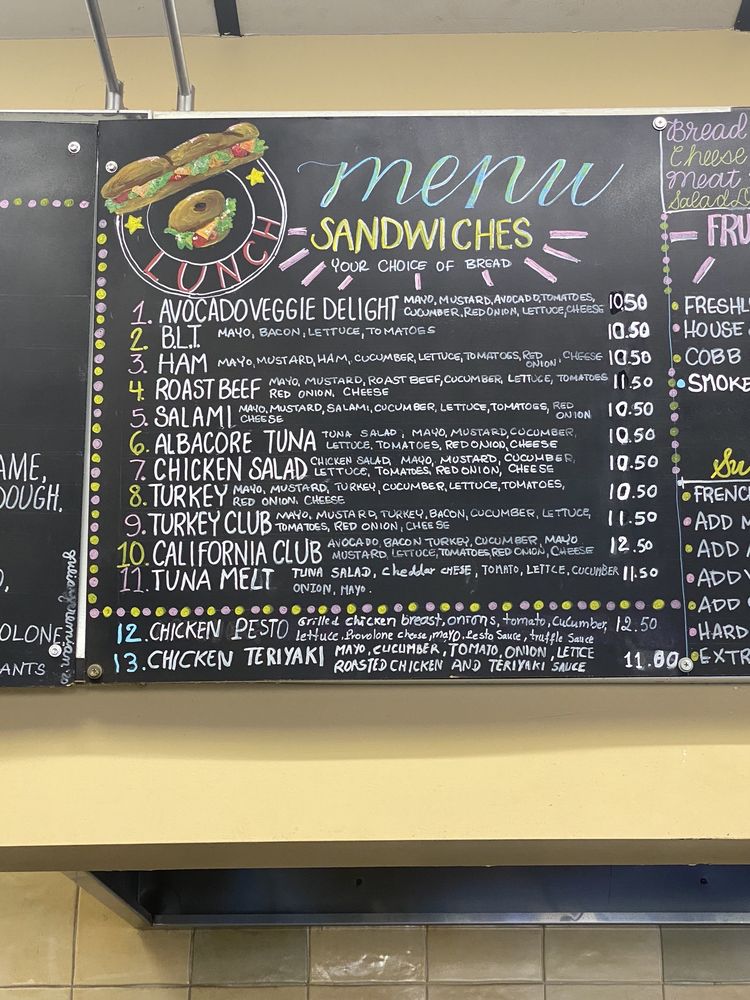 AME,
DOUGH.
OLONE
ANTS
LUNCH
menu
SANDWICHES
YOUR CHOICE OF BREAD
1. AVOCADO VEGGIE DELIGHT MAYO, MUSTARD, AVOCADO, TOMATOES, 10.50
CUCUMBER, RED ONION, LETTUCE, CHEESE
2. B.L.T. MAYO, BACON, LETTUCE, TOMATOES 10.50
3. HAM MAYO, MUSTARD, HAM, CUCUMBER, LETTUCE, TOMATOES, RED ONION, CHEESE 10.50
4. ROAST BEEF MAYO, MUSTARD, ROAST BEEF, CUCUMBER, LETTUCE, TOMATOES 11.50
RED ONION, CHEESE
5. SALAMI MAYO, MUSTARD, SALAMI, CUCUMBER, LETTUCE, TOMATOES, RED ONION 10.50
CHEESE
6. ALBACORE TUNA TUNA SALAD, MAYO, MUSTARD, CUCUMBER, 10.50
LETTUCE, TOMATOES, RED ONION, CHEESE
7. CHICKEN SALAD CHICKEN SALAD, MAYO, MUSTARD, CUCUMBER, 10.50
LETTUCE, TOMATOES, RED ONION, CHEESE
8. TURKEY MAYO, MUSTARD, TURKEY, CUCUMBER, LETTUCE, TOMATOES, 10.50
RED ONION, CHEESE
9. TURKEY CLUB MAYO, MUSTARD, TURKEY, BACON, CUCUMBER, LETTUCE, 11.50
TOMATOES, RED ONION, CHEESE
10. CALIFORNIA CLUB AVOCADO, BACON TURKEY, CUCUMBER, MAYO 12.50
MUSTARD, LETTUCE, TOMATOES, RED ONION, CHEESE
11. TUNA MELT TUNA SALAD, cheddar CHESE, TOMATO, LETTCE, CUCUMBER 11.50
ONION, MAYO.
12. CHICKEN PESTO Grilled chicken breast, onions, tomato, cucumber, 12.50
lettuce, Provolone cheese, mayo, Pesto Sauce, truffle Sauce
13. CHICKEN TERIYAKI MAYO, CUCUMBER, TOMATO, ONION, LETTCE 11.00
ROASTED CHICKEN AND TERIYAKI SAUCE
Bread
Cheese
Meat
Salad
FRU
FRESHL
HOUSE
COBB
SMOKE
Su
FRENC
ADD M
ADD
ADD
ADD
HARD
EXTR